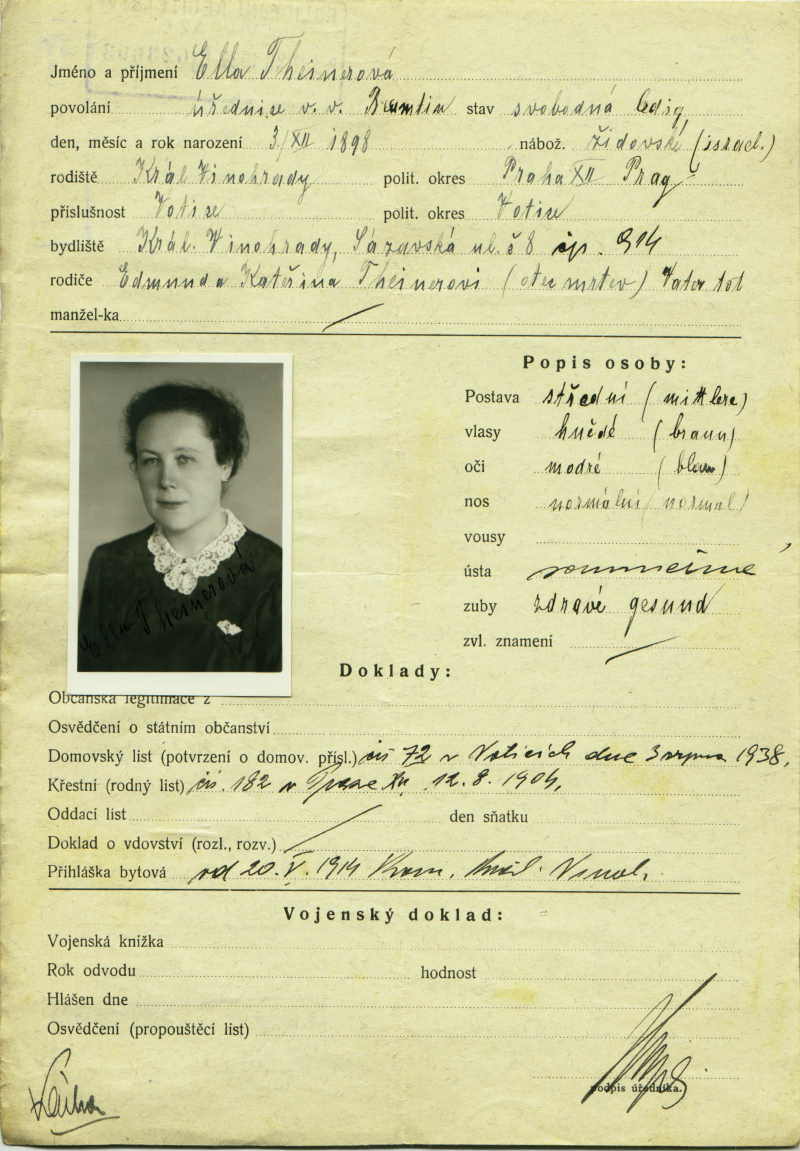 Jméno a příjmení Ella Theinerová
povolání úřednice v. v. Beamtin stav svobodná ledig
den, měsíc a rok narození 3/XII 1898 nábož. židovské (israel.)
rodiště Král Vinohrady polit. okres Praha XII Prag
příslušnost Votice polit. okres Votice
bydliště Král. Vinohrady, Sázavská ul. č 8 čp. 914
rodiče Edmund a Kateřina Theinerovi (otec mrtev) Vater tot
manžel-ka
Popis osoby:
Postava střední (mittlere)
vlasy hnědé (braun)
oči modré (blau)
nos normální (normal)
vousy
ústa
zuby zdravé gesund
zvl. znamení
Ella Theinerová
Doklady:
Občanská legitimace z
Osvědčení o státním občanství
Domovský list (potvrzení o domov. přísl.) čís 72 v Voticích dne 3 srpna 1938,
Křestní (rodný list) čís. 182 v Praze XII. 12. 8. 1904,
Oddací list den sňatku
Doklad o vdovství (rozl., rozv.)
Přihláška bytová od 20. V. 1914 Kom. Král. Vinoh.
Vojenský doklad:
Vojenská knížka
Rok odvodu hodnost
Hlášen dne
Osvědčení (propouštěcí list)
podpis úředníka.